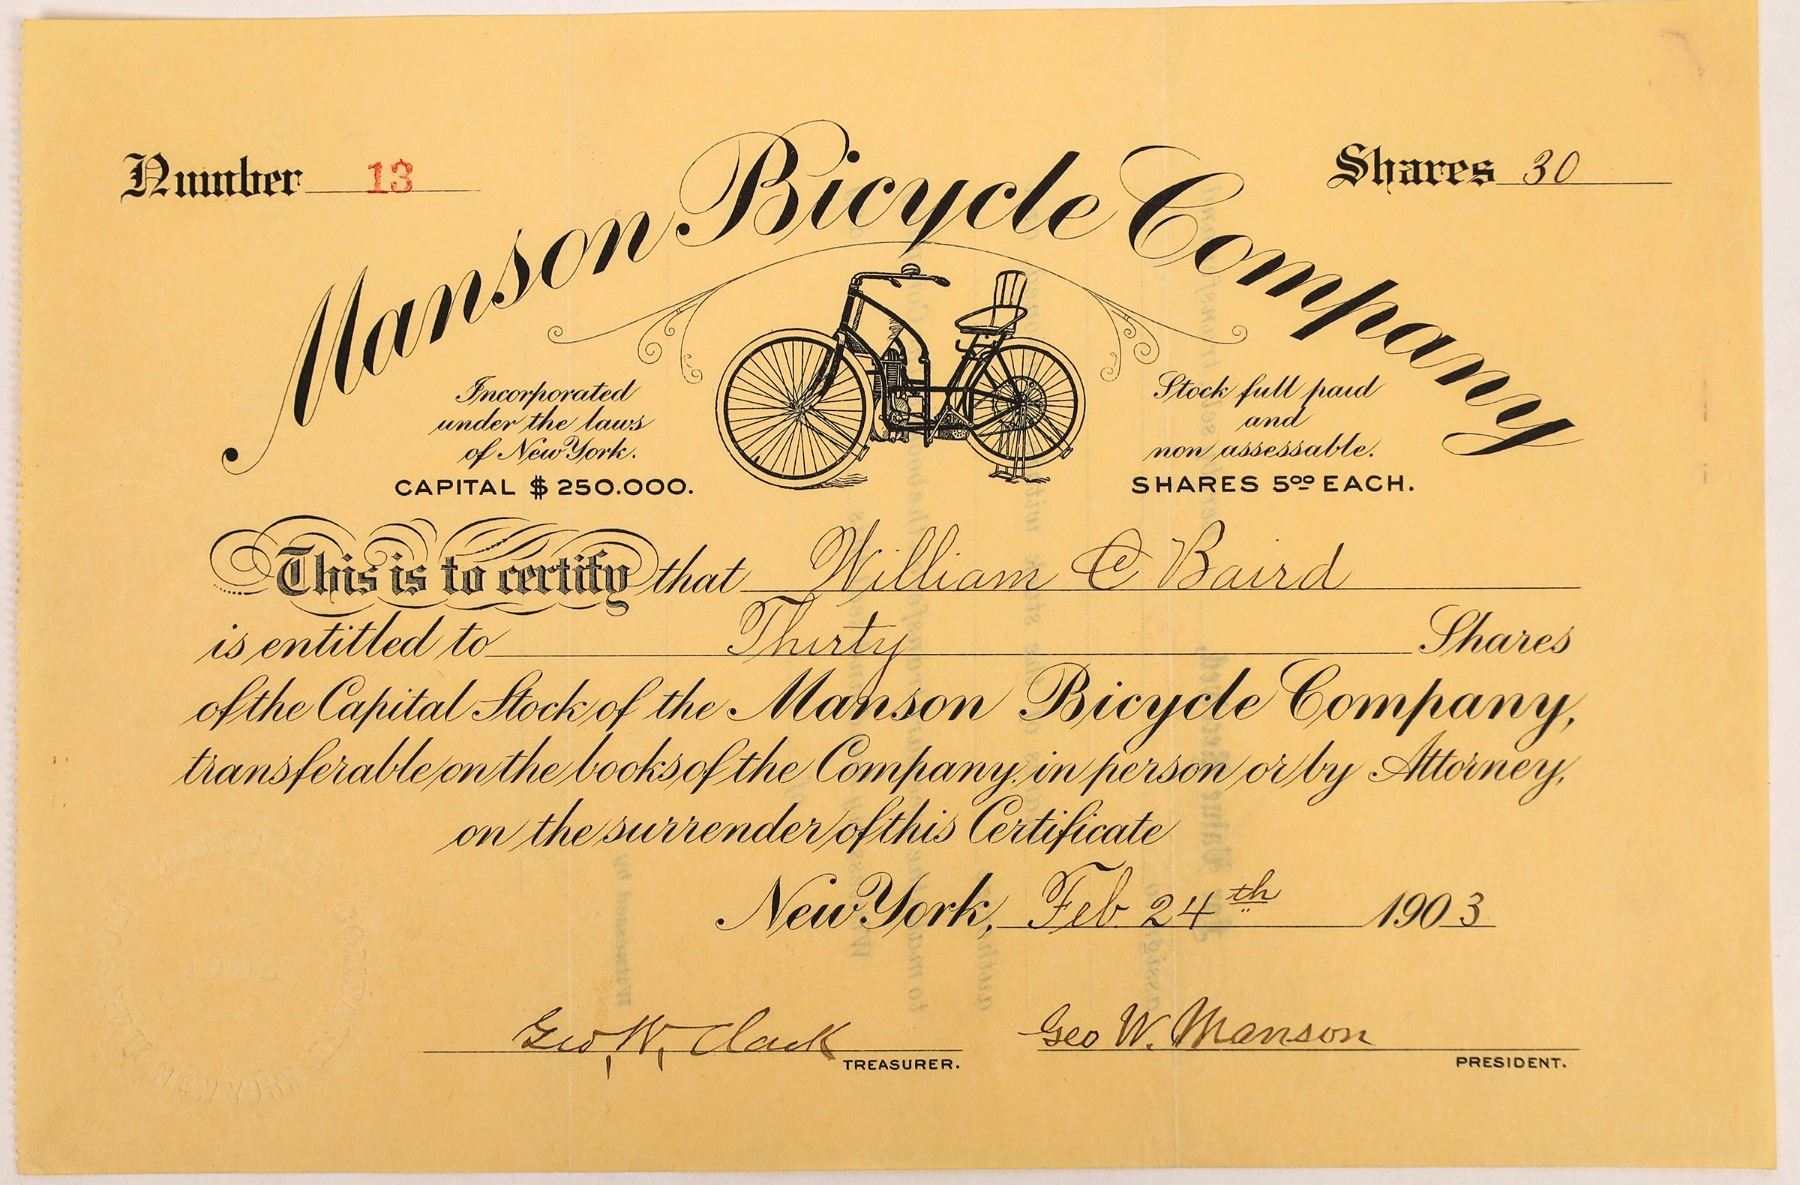 Number 13
Shares 30
Manson Bicycle Company
Incorporated
under the laws
of New York.
CAPITAL $ 250.000.
Stock full paid
and
non assessable.
SHARES 5⁰⁰ EACH.
This is to certify that William C Baird
is entitled to Thirty Shares
of the Capital Stock of the Manson Bicycle Company,
transferable on the books of the Company, in person or by Attorney,
on the surrender of this Certificate
New York, Feb. 24th 1903
Geo. W. Clark
TREASURER.
Geo W. Manson
PRESIDENT.
NEW YORK